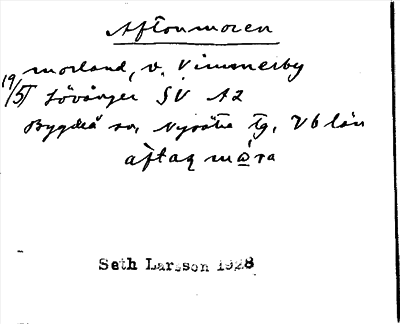 Aftonmoren
morland, v. Vimmerby
19/5 Lövånger SV A2
Bygdeå sn, Nysätra tg, Vb län
aftaq måra
Seth Larsson 1928